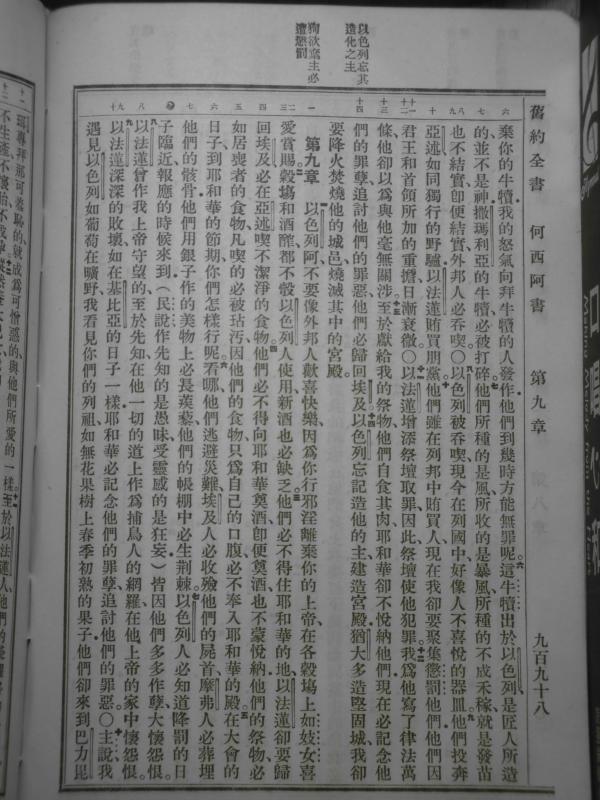 舊約全書 何西阿書 第九章 九百九十八
以色列忘其
造化之主
狗欲棄主必
遭懲罰
棄你的牛犢我的怒氣向拜牛犢的人發作他們到幾時方能無罪呢這牛犢出於以色列是匠人所造
的並不是神撒瑪利亞的牛犢必被打碎他們所種的是風所收的是暴風所種的不成禾稼就是發苗
也不結實卽便結實外邦人必吞喫〇以色列被吞喫現今在列國中好像人不喜悅的器皿他們投奔
亞述如同獨行的野驢以法蓮賄買朋黨他們雖在列邦中賄買人現在我卻要聚集懲罰他們他們因
君王和首領所加的重擔日漸衰微〇以法蓮增添祭壇取罪因此祭壇使他犯罪我爲他寫了律法萬
條他卻以爲與他毫無關涉至於獻給我的祭物他們自食其肉耶和華卻不悅納他們現在必記念他
們的罪孽追討他們的罪惡他們必歸回埃及以色列忘記造他的主建造宮殿猶大多造堅固城我卻
要降火焚燒他的城邑燒滅其中的宮殿
第九章 以色列阿不要像外邦人歡喜快樂因爲你行邪淫離棄你的上帝在各穀塲上如妓女喜
愛賞賜穀塲和酒醡都不彀以色列人使用新酒也必缺乏他們必不得住耶和華的地以法蓮卻要歸
回埃及必在亞述喫不潔淨的食物他們必不得向耶和華奠酒卽便奠酒也不蒙悅納他們的祭物必
如居喪者的食物凡喫的必被玷污因他們的食物只爲自己的口腹必不奉入耶和華的殿在大會的
日子到耶和華的節期你們怎樣行呢看哪他們逃避災難埃及人必收殮他們的屍首摩弗人必葬埋
他們的骸骨他們用銀子作的美物上必長蒺藜他們的帳棚中必生荆棘以色列人必知道降罰的日
子臨近報應的時候來到（民說作先知的是愚昧受靈感的是狂妄）皆因他們多多作孽大懷怨恨
以法蓮曾作我上帝守望的至於先知在他一切的道上作爲捕鳥人的網羅在他上帝的家中懷怨恨
以法蓮深深的敗壞如在基比亞的日子一樣耶和華必記念他們的罪孽追討他們的罪惡〇主說我
遇見以色列如葡萄在曠野我看見你們的列祖如無花果樹上春季初熟的果子他們卻來到巴力毘